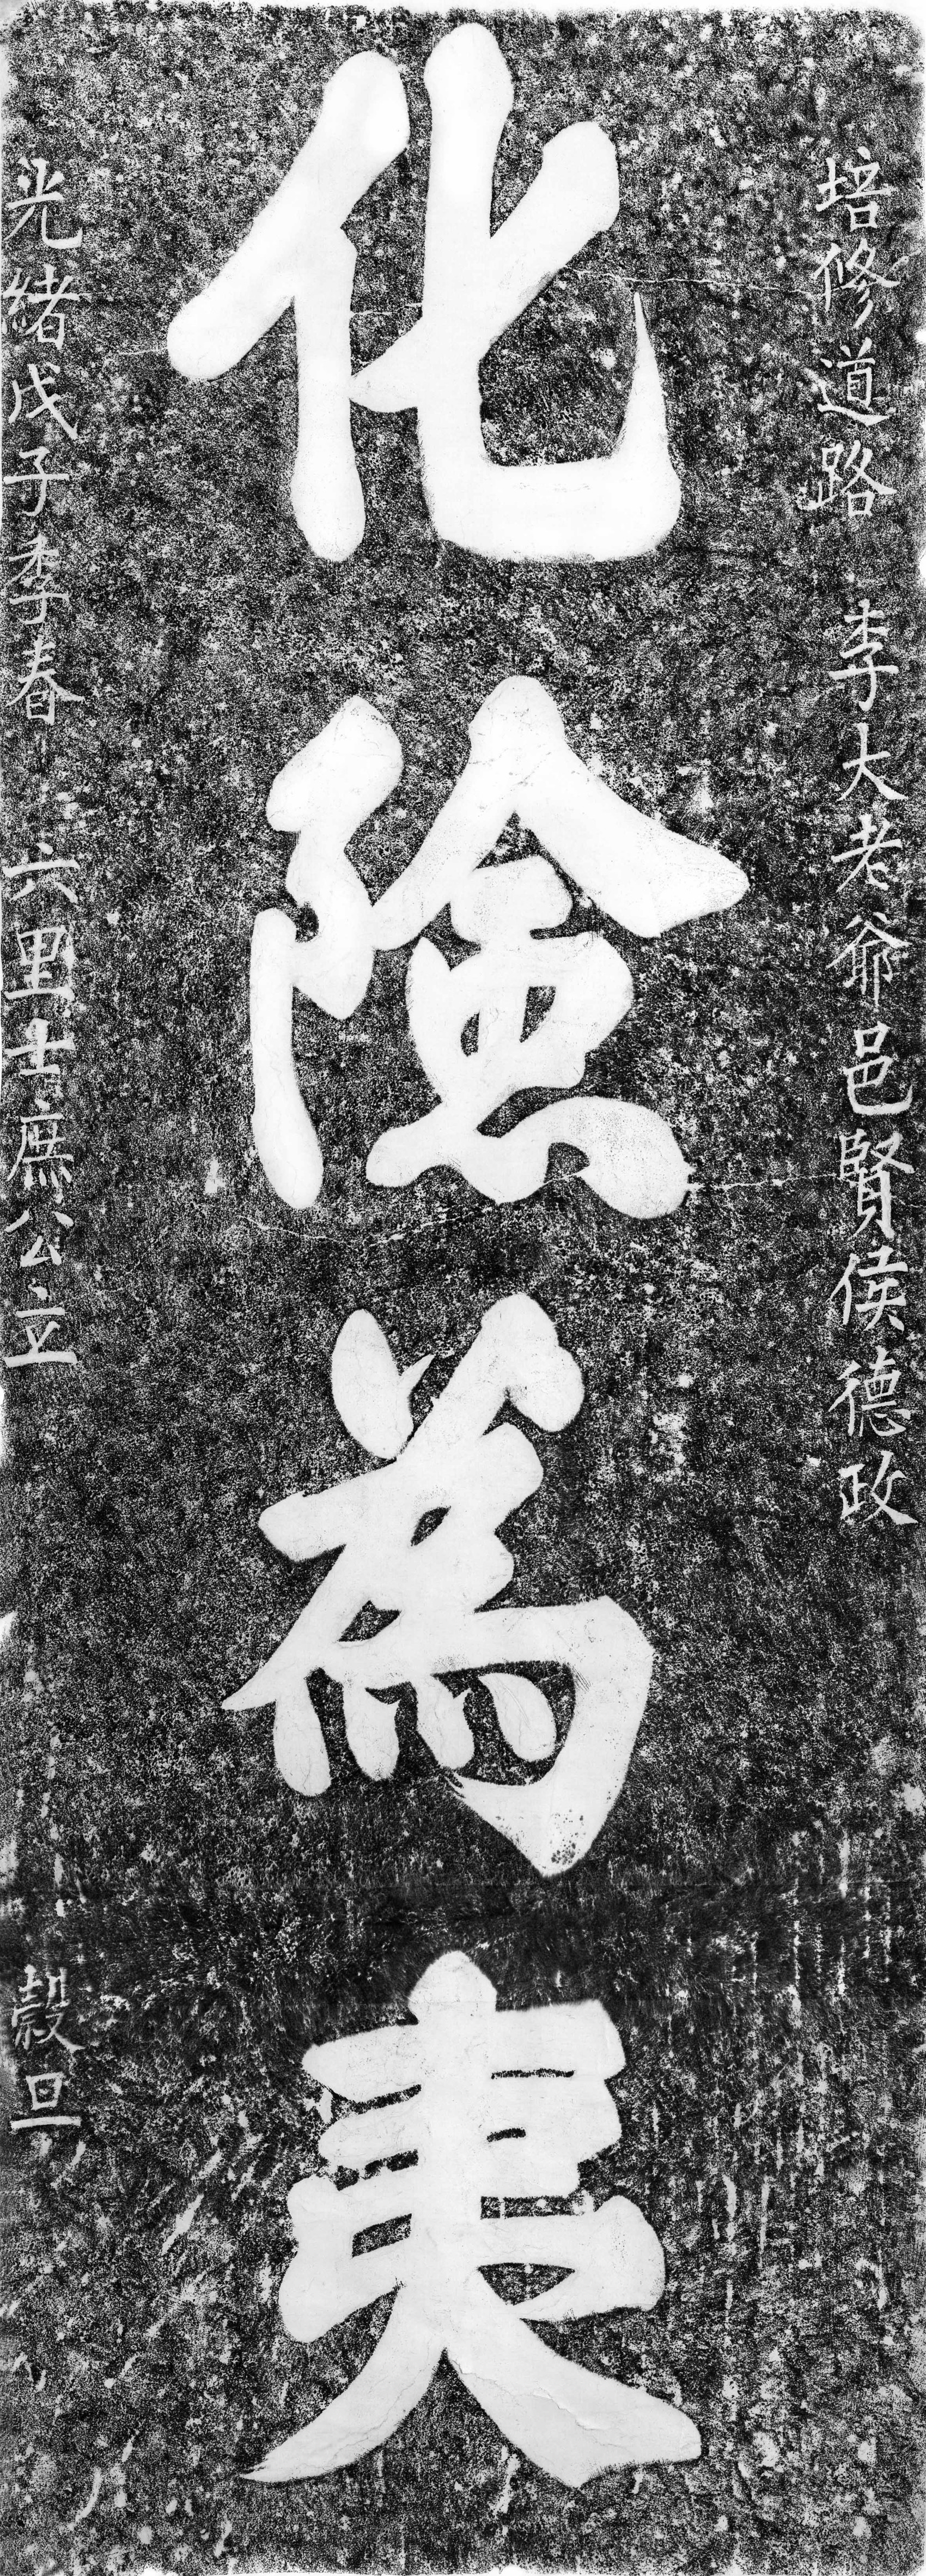 培修道路 李大老爺邑賢侯德政
化險為夷
光緒戊子季春 六里士庶公立 穀旦